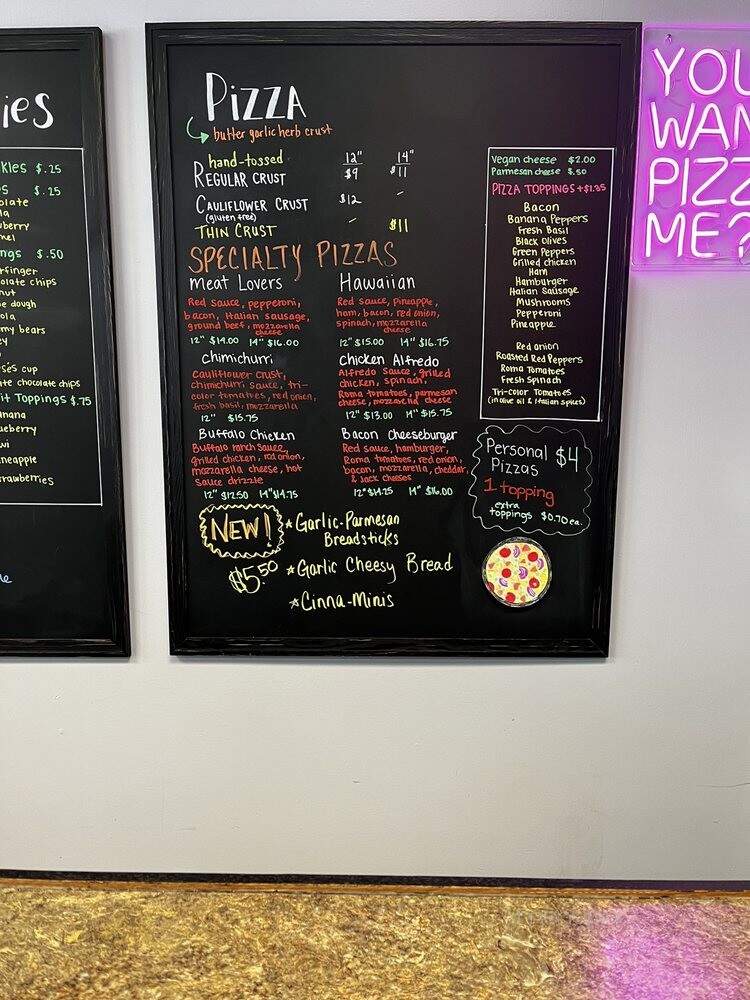 ies
kles $.25
s $.25
olate
la
berry
mel
ngs $.50
rfinger
olate chips
nut
e dough
ola
my bears
ey
se's cup
te chocolate chips
it Toppings $.75
anana
ueberry
wi
neapple
rawberries
Pizza
butter garlic herb crust
hand-tossed 12" 14"
Regular Crust $9 $11
Cauliflower Crust $12 -
(gluten free)
Thin Crust - $11
Specialty Pizzas
Meat Lovers
Red sauce, pepperoni,
bacon, Italian sausage,
ground beef, mozzarella
cheese
12" $14.00 14" $16.00
Chimichurri
Cauliflower crust,
chimichurri sauce, tri-
color tomatoes, red onion,
fresh basil, mozzarella
12" $15.75
Buffalo Chicken
Buffalo ranch sauce,
grilled chicken, red onion,
mozzarella cheese, hot
sauce drizzle
12" $12.50 14" $14.75
Hawaiian
Red sauce, pineapple,
ham, bacon, red onion,
spinach, mozzarella
cheese
12" $15.00 14" $16.75
Chicken Alfredo
Alfredo sauce, grilled
chicken, spinach,
Roma tomatoes, parmesan
cheese, mozzarella cheese
12" $13.00 14" $15.75
Bacon Cheeseburger
Red sauce, hamburger,
Roma tomatoes, red onion,
bacon, mozzarella, cheddar,
& Jack cheeses
12" $14.25 14" $16.00
New!
$5.50
*Garlic-Parmesan
Breadsticks
*Garlic Cheesy Bread
*Cinna-Minis
Vegan cheese $2.00
Parmesan cheese $.50
Pizza Toppings +$1.25
Bacon
Banana Peppers
Fresh Basil
Black Olives
Green Peppers
Grilled Chicken
Ham
Hamburger
Italian Sausage
Mushrooms
Pepperoni
Pineapple
Red onion
Roasted Red Peppers
Roma Tomatoes
Fresh Spinach
Tri-color Tomatoes
(in olive oil & Italian spices)
Personal $4
Pizzas
1 topping
extra
toppings $0.70 ea.
YOU
WAN
PIZZ
ME?